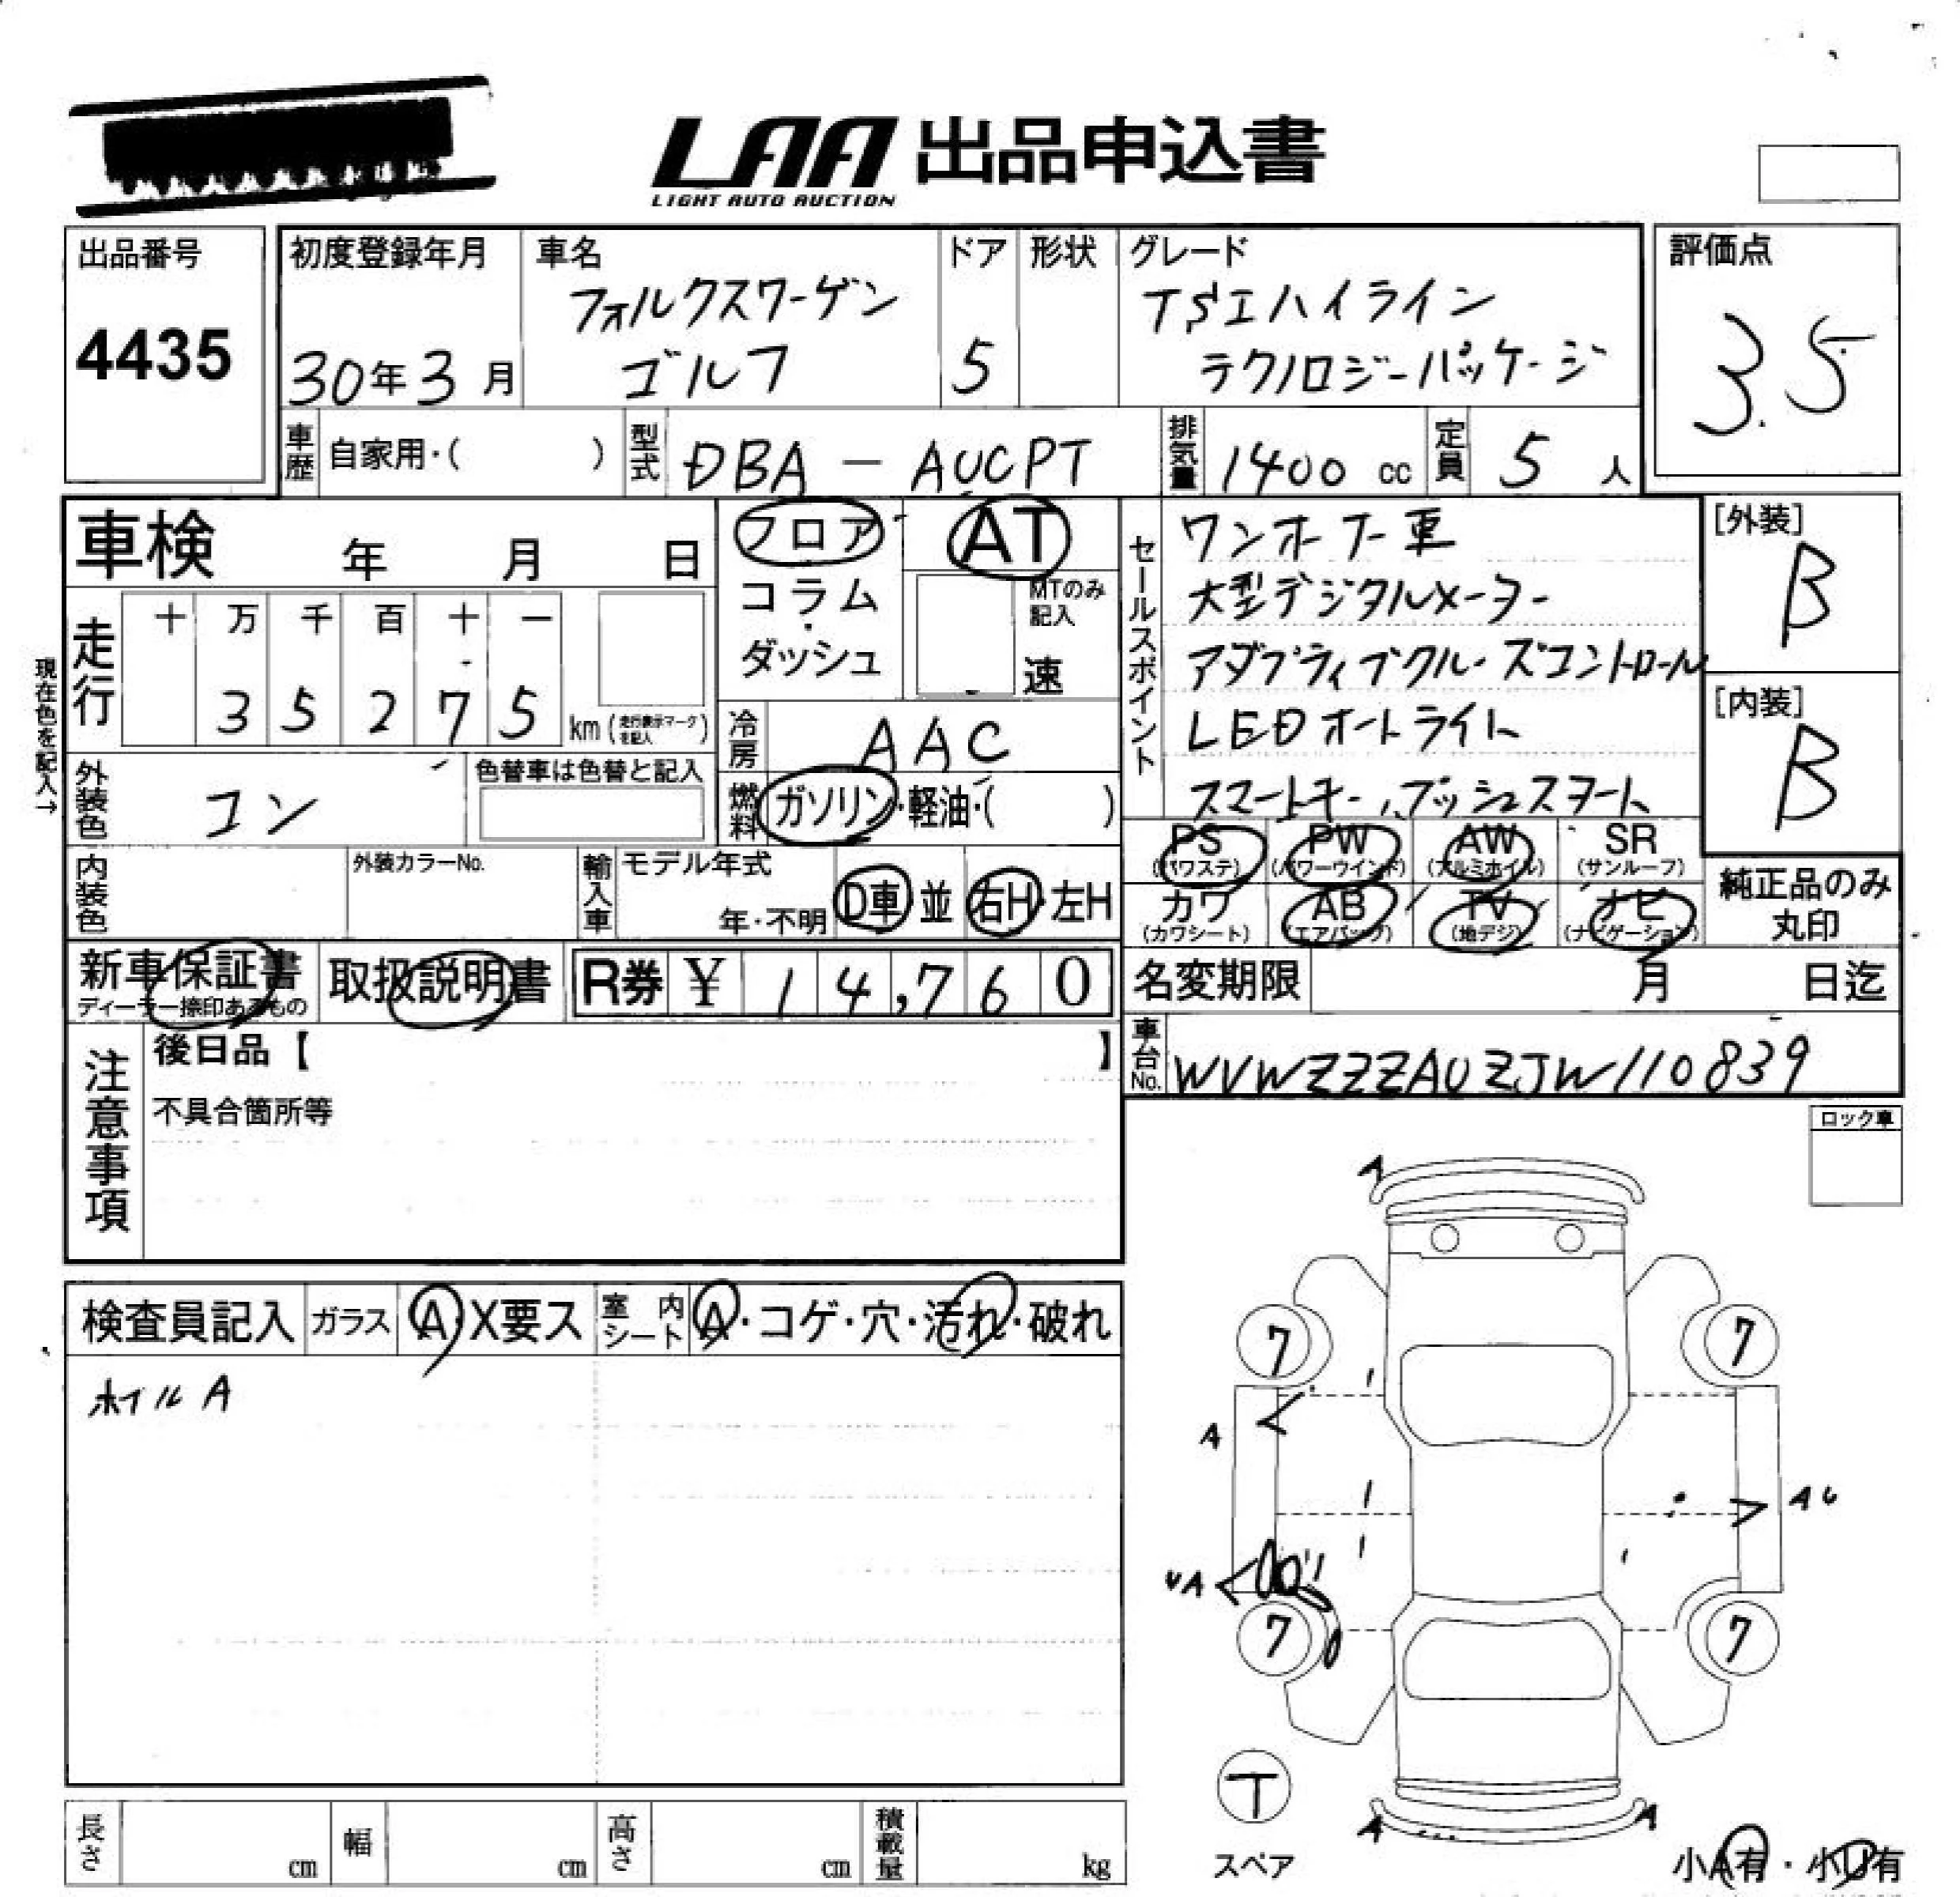 LAA 出品申込書
LIGHT AUTO AUCTION
出品番号
4435
初度登録年月
30年3月
車名
フォルクスワーゲン
ゴルフ
ドア
5
形状
グレード
TSIハイライン
テクノロジーパッケージ
評価点
3.5
車歴 自家用・( )
型式 DBA-AUCPT
排気量 1400 cc
定員 5 人
車検 年 月 日
フロア
コラム
・
ダッシュ
AT
MTのみ
記入
速
セールスポイント
ワンオーナー車
大型デジタルメーター
アダプティブクルーズコントロール
LEDオートライト
スマートキー、プッシュスタート
[外装]
B
[内装]
B
現在色を記入→
走行
十 万 千 百 十 一
3 5 2 7 5 km (走行表示マークを記入)
冷房 AAC
外装色 コン
色替車は色替と記入
燃料 ガソリン・軽油・( )
内装色
外装カラーNo.
輸入車 モデル年式
年・不明
D車・並
右H・左H
PS
(パワステ)
PW
(パワーウインド)
AW
(アルミホイル)
SR
(サンルーフ)
カワ
(カワシート)
AB
(エアバッグ)
TV
(地デジ)
ナビ
(ナビゲーション)
純正品のみ
丸印
新車保証書
ディーラー捺印あるもの
取扱説明書
R券 ¥ 14,760
名変期限 月 日迄
車台No. WVWZZZAUZJW110839
注意事項
後日品【 】
不具合箇所等
ロック車
検査員記入
ガラス A・X要ス
室内シート A・コゲ・穴・汚れ・破れ
ホイルA
A
7
7
A
AU
UA
7
7
T
スペア
A
A
長さ cm
幅 cm
高さ cm
積載量 kg
小A有・小U有